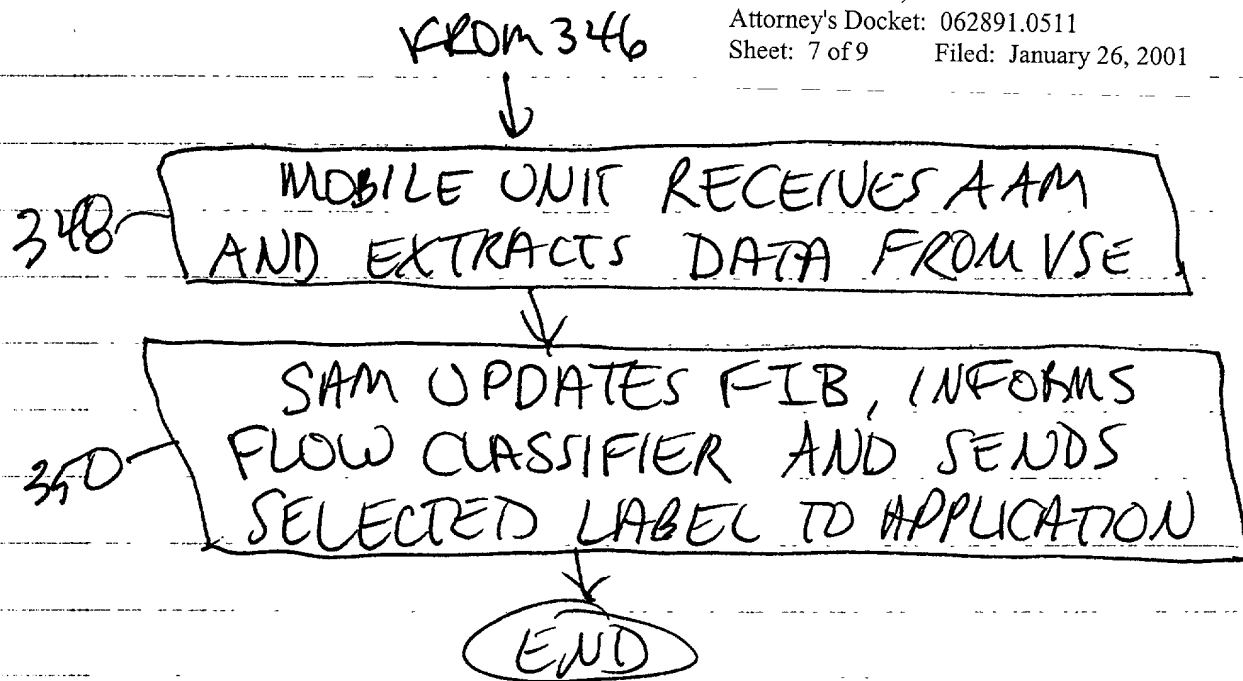 Attorney's Docket: 062891.0511
Sheet: 7 of 9 Filed: January 26, 2001
FROM 346
348
MOBILE UNIT RECEIVES AAM
AND EXTRACTS DATA FROM VSE
350
SAM UPDATES FIB, INFORMS
FLOW CLASSIFIER AND SENDS
SELECTED LABEL TO APPLICATION
END